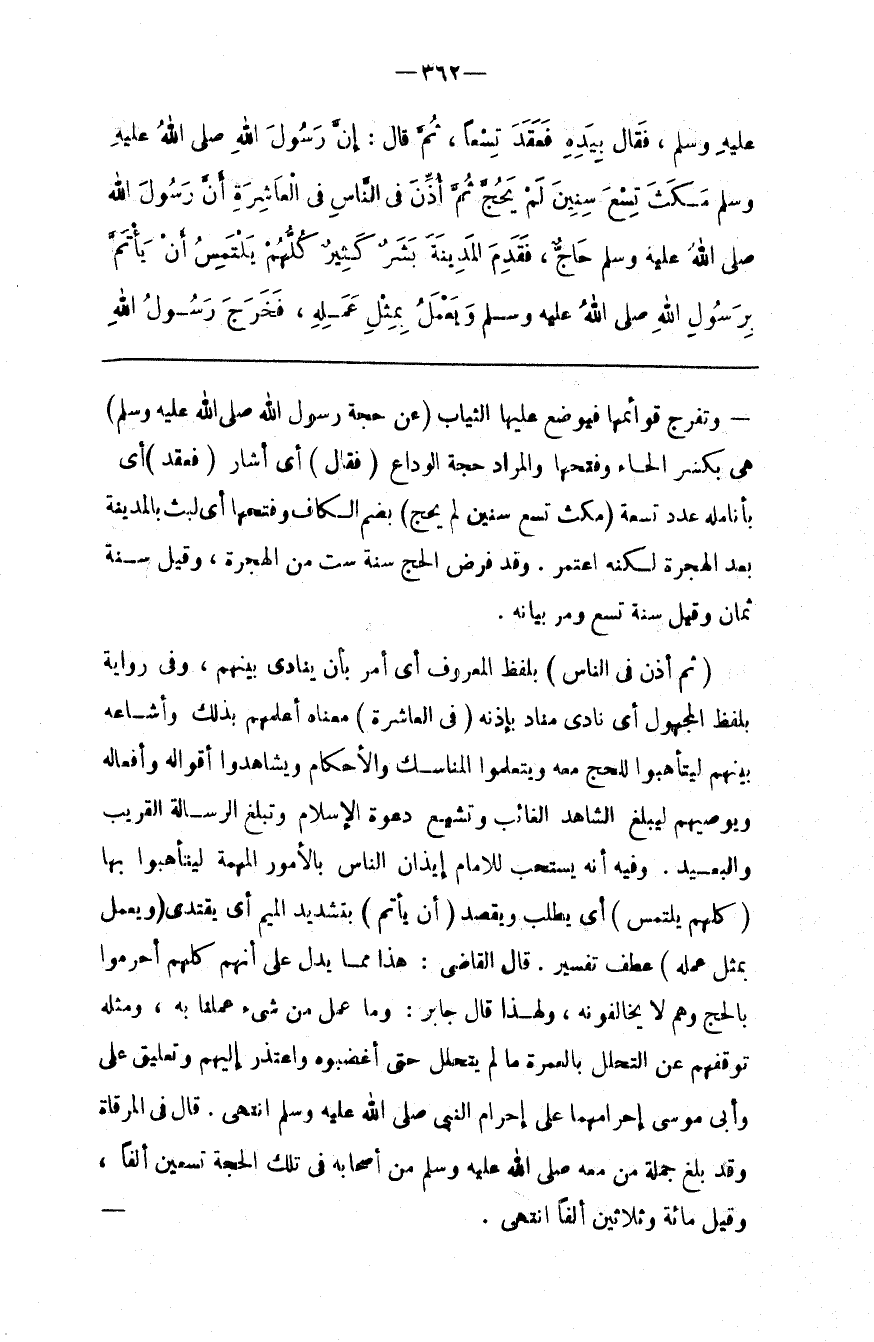 —٣٦٢—
عليهِ وسلم ، فَقال بِيَدِهِ فَعَقَدَ تِسْعاً ، ثُمَّ قال : إنَّ رَسُولَ اللهِ صلى اللهُ عليهِ
وسلم مَـكَثَ تِسْعَ سِنِينَ لَمْ يَحُجَّ ثُمَّ أُذِّنَ فى النَّاسِ فى الْعَاشِرَةِ أَنَّ رَسُولَ الله
صلى اللهُ عليهَ وسلم حَاجٌّ ، فَقَدِمَ المَدِينَةَ بَشَرٌ كَثِيرٌ كُلُّهُمْ يَلْتَمِسُ أَنْ يَأْتَمَّ
بِرَسُولِ اللهِ صلى اللهُ عليه وسـلم وَيَعْمَلُ بِمِثْلِ عَمَـلِهِ ، فَخَرَجَ رَسُـولُ اللهِ
— وتفرج قوائمها فيوضع عليها الثياب (عن حجة رسول الله صلى الله عليه وسلم)
هى بكسر الحـاء وفتحها والمراد حجة الوداع ( فقال ) أى أشار ( فعقد )أى
بأنامله عدد تسعة (مكث تسع سنين لم يحج) بضم الـكاف وفتحها أى لبث بالمدينة
بعد الهجرة لـكنه اعتمر . وقد فرض الحج سنة ست من الهجرة ، وقيل سـنة
ثمان وقيل سنة تسع ومر بيانه .
( ثم أذن فى الناس ) بلفظ المعروف أى أمر بأن ينادى بينهم ، وفى رواية
بلفظ المجهول أى نادى مناد بإذنه ( فى العاشرة ) معناه أعلمهم بذلك وأشـاعه
بينهم ليتأهبوا للحج معه ويتعلموا المناسـك والأحكام ويشاهدوا أقواله وأفعاله
ويوصيهم ليبلغ الشاهد الغائب وتشيـع دعوة الإسلام وتبلغ الرسـالة القريب
والبعـيد . وفيه أنه يستحب للامام إيذان الناس بالأمور المهمة ليتأهبوا بها
( كلهم يلتمس ) أى يطلب ويقصد ( أن يأتم ) بتشديد الميم أى يقتدى(ويعمل
بمثل عمله ) عطف تفسير . قال القاضى : هذا ممـا يدل على أنهم كلهم أحرموا
بالحج وهم لا يخالفونه ، ولهـذا قال جابر : وما عمل من شىء عملنا به ، ومثله
توقفهم عن التحلل بالعمرة ما لم يتحلل حتى أغضبوه واعتذر إليهم وتعليق على
وأبى موسى إحرامهما على إحرام النبى صلى الله عليه وسلم انتهى . قال فى المرقاة
وقد بلغ جملة من معه صلى الله عليه وسلم من أصحابه فى تلك الحجة تسعين ألفاً ،
وقيل مائة وثلاثين ألفاً انتهى . —